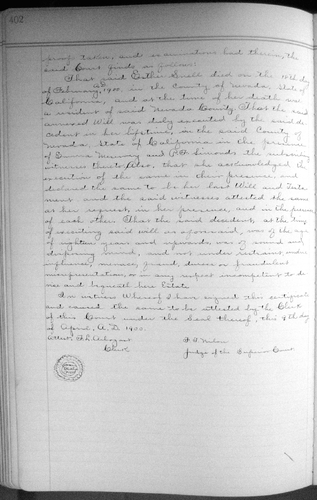 402
proofs taken, and examinations had therein, the
said Court finds, as follows:
That said Esther Small died on the 10th day
of February, A.D. 1900, in the County of Nevada, State of
California, and at the time of her death was
a resident of said Nevada County. That the said
annexed Will was duly executed by the said de
cedent in her lifetime, in the said County of
Nevada, State of California in the presence
of Emma and the subscribing
witnesses thereto. Also, that she acknowledged the
execution of the same in their presence, and
declared the same to be her last Will and Testa
ment and the said witnesses attested the same
at her request, in her presence, and in the presence
of each other. That the said decedent, at the time
of executing said will as aforesaid, was of the age
of eighteen years and upwards, was of sound and
disposing mind, and not under restraint, undue
influence, menace, fraud, duress or fraudulent
misrepresentation, or in any respect incompetent to de
vise and bequeath her Estate.
In witness Whereof I have signed this certificate
and caused the same to be attested by the Clerk
of this Court under the Seal thereof, this 9th day
of April, A.D. 1900.
Attest, F. L. Arbogast
Clerk
F. T. Nilon
Judge of the Superior Court